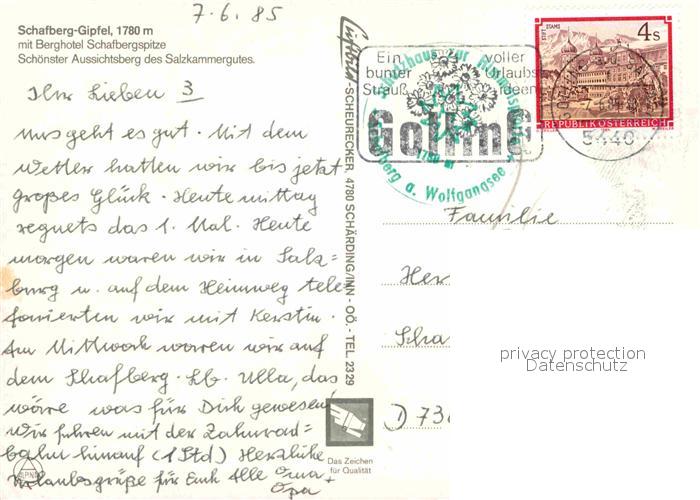 7.6.85
Schafberg-Gipfel, 1780 m
mit Berghotel Schafbergspitze
Schönster Aussichtsberg des Salzkammergutes.
Ihr Lieben 3
uns geht es gut. Mit dem
Wetter hatten wir bis jetzt
großes Glück. Heute mittag
regnets das 1. Mal. Heute
morgen waren wir in Salz=
burg u. auf dem Heimweg tele
fonierten wir mit Kerstin.
Am Mittwoch waren wir auf
dem Schafberg. Lb. Ulla, das
wäre was für Dich gewesen
wir fuhren mit der Zahnrad=
bahn hinauf (1 Std) Herzliche
Urlaubsgrüße für Euch Alle Oma +
Opa
Luftbild-SCHEURECKER, 4780 SCHÄRDING/INN - OÖ. - TEL. 2329
Das Zeichen
für Qualität
Ein voller
bunter Urlaubs
Strauß ideen
Golling
1780 m
Schafberg a. Wolfgangsee
STIFT STAMS
4 S
REPUBLIK ÖSTERREICH
5440
Familie
Her
Scha
D 73
privacy protection
Datenschutz